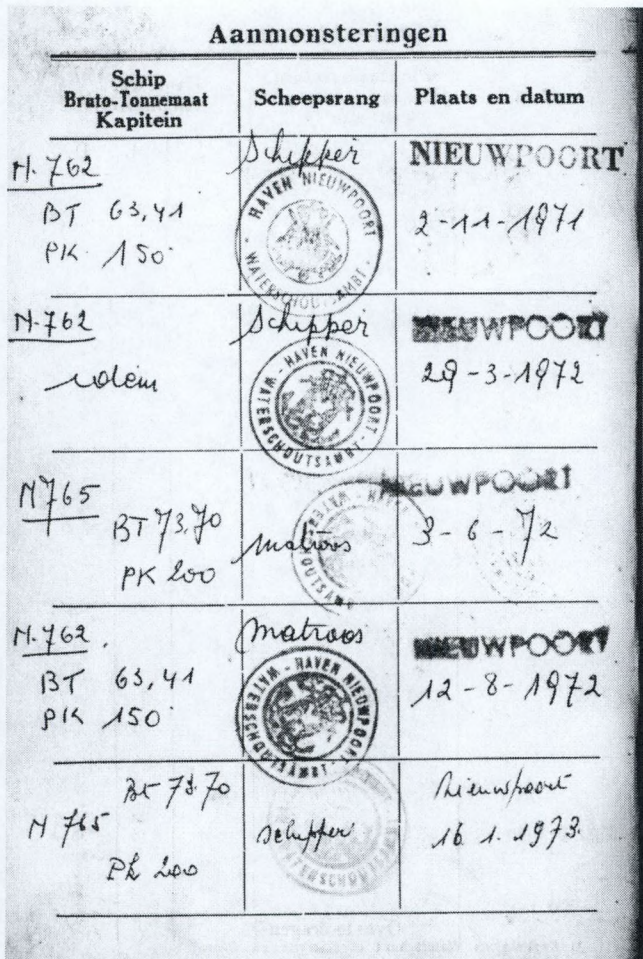 Aanmonsteringen
Schip
Bruto-Tonnemaat
Kapitein
Scheepsrang
Plaats en datum
N.762
BT 63,41
PK 150
Schipper
HAVEN NIEUWPOORT
WATERSCHOUTSAMBT
NIEUWPOORT
2-11-1971
N.762
idem
Schipper
HAVEN NIEUWPOORT
WATERSCHOUTSAMBT
NIEUWPOORT
29-3-1972
N765
BT 73,70
PK 200
matroos
NIEUWPOORT
3-6-72
N.762.
BT 63,41
PK 150
Matroos
HAVEN NIEUWPOORT
WATERSCHOUTSAMBT
NIEUWPOORT
12-8-1972
N 765
Bt 73.70
Pk 200
schipper
Nieuwpoort
16.1.1973.